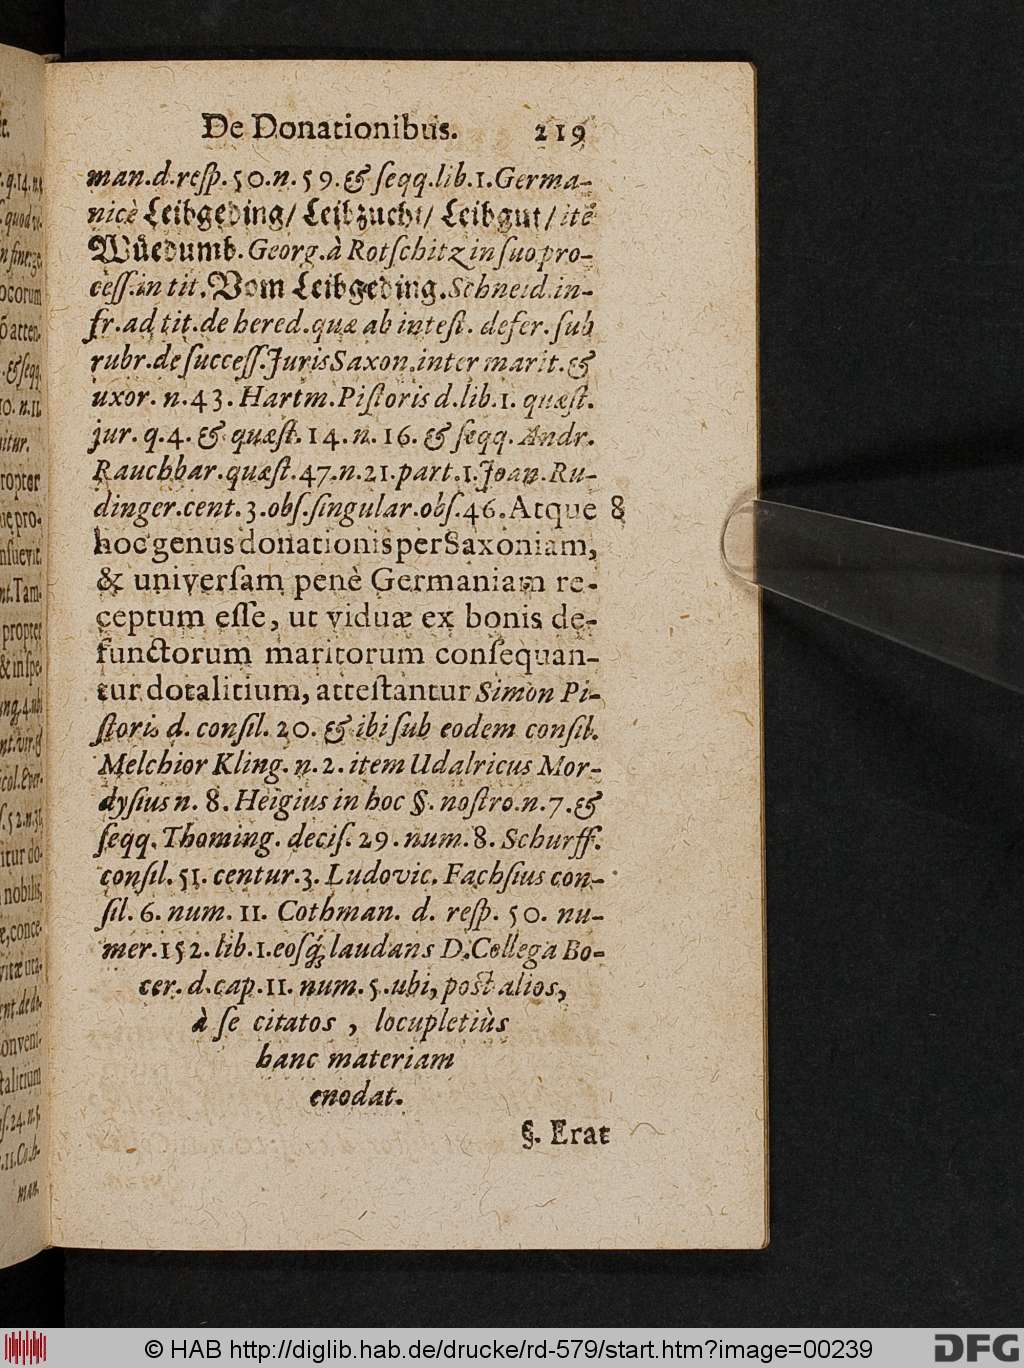 De Donationibus. 219
man.d.resp.50.n.59.& seqq.lib.1.Germa-
nicè Leibgeding/ Leibzucht/ Leibgut/ itē
Wůedumb. Georg.à Rotschitz in suo pro-
cess.in tit. Vom Leibgeding. Schneid.in-
fr.ad tit.de hered.quæ ab intest. defer. sub
rubr.de success.Juris Saxon.inter marit.&
uxor. n.43. Hartm.Pistoris d.lib.1. quæst.
jur. q.4. & quæst. 14. n. 16. & seqq. Andr.
Rauchbar.quæst.47.n.21.part.1.Joan.Ru-
dinger.cent. 3.obs.singular.obs.46. Atque 8
hoc genus donationis per Saxoniam,
& universam penè Germaniam re-
ceptum esse, ut viduæ ex bonis de-
functorum maritorum consequan-
tur dotalitium, attestantur Simon Pi-
storis d. consil. 20. & ibi sub eodem consil.
Melchior Kling. n.2. item Udalricus Mor-
dysius n. 8. Heigius in hoc §. nostro.n.7.&
seqq. Thoming. decis. 29. num.8. Schurff.
consil. 51. centur.3. Ludovic. Fachsius con-
sil. 6. num. 11. Cothman. d. resp. 50. nu-
mer.152. lib.1.eosq́; laudans D.Collega Bo-
cer. d.cap.11. num. 5.ubi, post alios,
à se citatos, locupletiùs
hanc materiam
enodat.
§. Erat
© HAB http://diglib.hab.de/drucke/rd-579/start.htm?image=00239
DFG